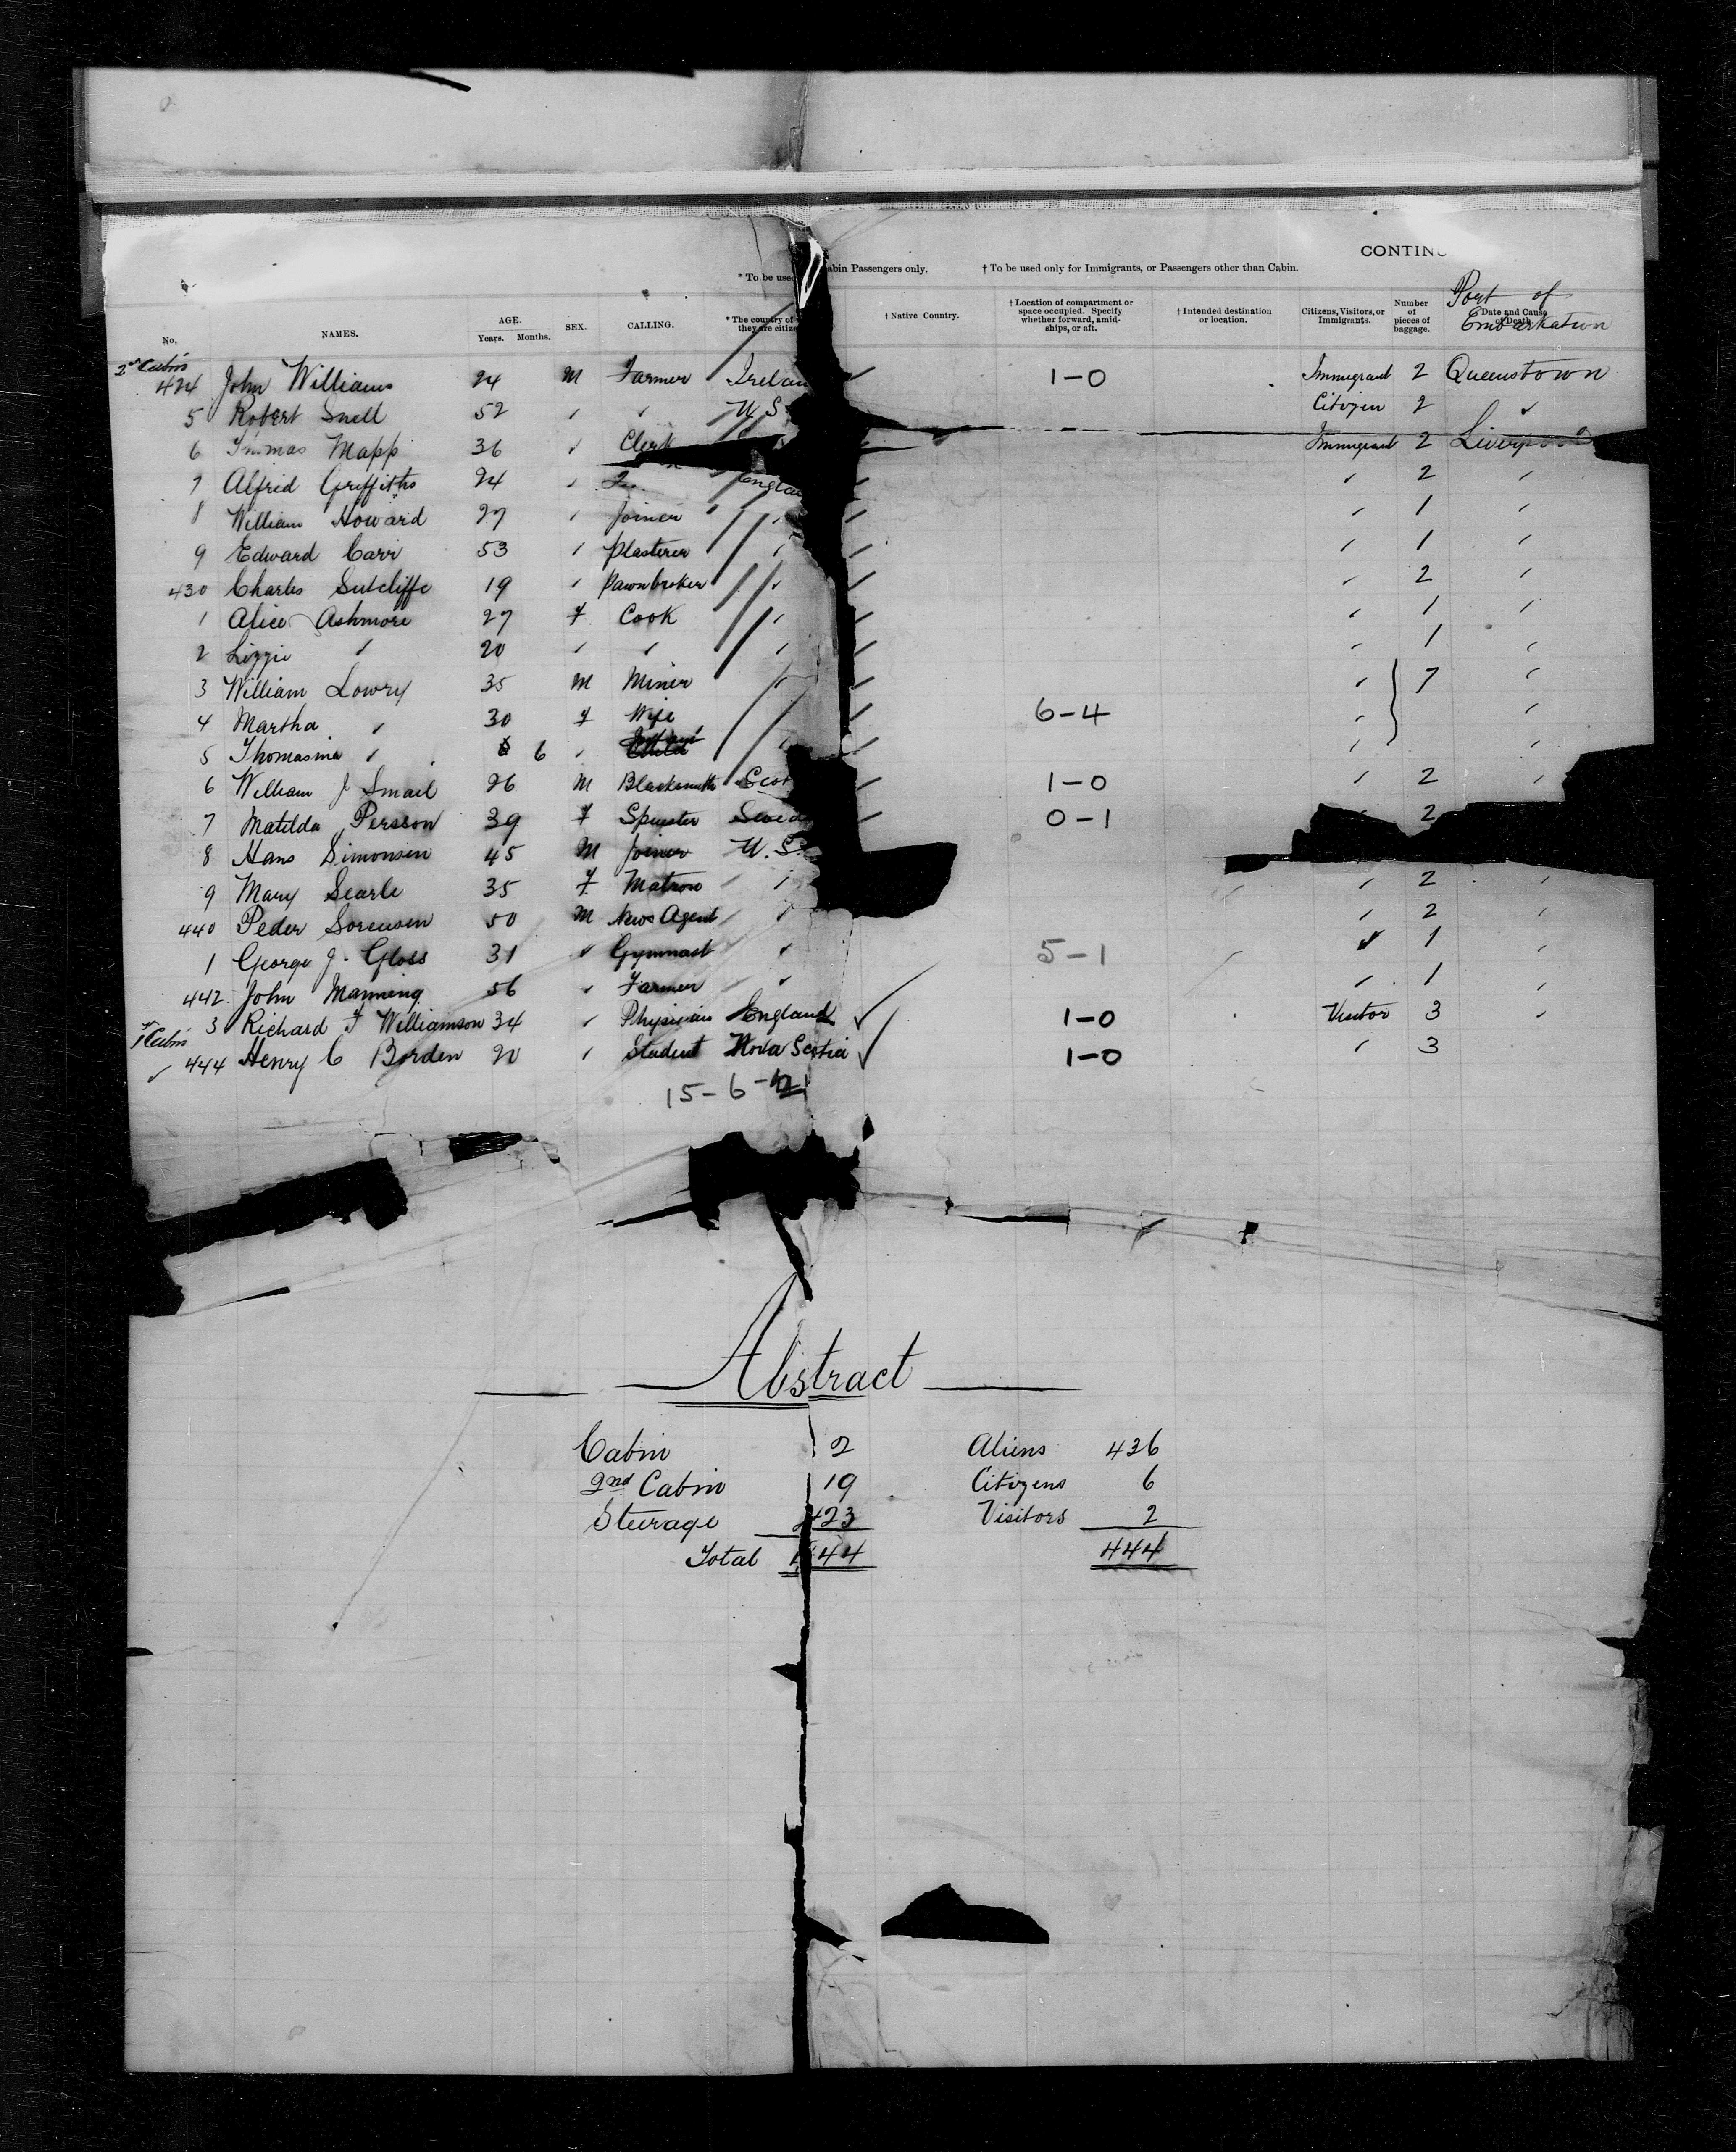 CONTIN
* To be used Cabin Passengers only. † To be used only for Immigrants, or Passengers other than Cabin.
No. NAMES. AGE. Years. Months. SEX. CALLING. * The country of they are citize † Native Country. † Location of compartment or space occupied. Specify whether forward, amidships, or aft. † Intended destination or location. Citizens, Visitors, or Immigrants. Number of pieces of baggage. Date and Cause of Death. Port of Embarkation
2nd Cabin
424 John Williams 24 M Farmer Irelan 1-0 Immigrant 2 Queenstown
5 Robert Snell 52 " " U.S. Citizen 2 "
6 Thomas Mapp 36 " Clerk Immigrant 2 Liverpool
7 Alfrid Griffiths 24 " Englan " 2 "
8 William Howard 27 " Joiner " " 1 "
9 Edward Carr 53 " Plasterer " " 1 "
430 Charles Sutcliffe 19 " Pawnbroker " " 2 "
1 Alice Ashmore 27 F Cook " " 1 "
2 Lizzie " 20 " " " " 1 "
3 William Lowry 35 M Miner " " 7 "
4 Martha " 30 F Wife 6-4 " "
5 Thomasina " 6 " Infant " " "
6 William J Smail 26 M Blacksmith Scot 1-0 " 2 "
7 Matilda Persson 39 F Spinster Swed 0-1 " 2
8 Hans Simonsen 45 M Joiner U.S.
9 Mary Searle 35 F Matron " " 2 "
440 Peder Sorensen 50 M News Agent " " 2 "
1 George J. Gloss 31 " Gymnast " 5-1 " 1 "
442 John Manning 56 " Farmer " " 1 "
3 Richard F Williamson 34 " Physician England 1-0 Visitor 3 "
1st Cabin
444 Henry C Borden 20 " Student Nova Scotia 1-0 " 3
15-6-
Abstract
Cabin 2 Aliens 436
2nd Cabin 19 Citizens 6
Steerage 423 Visitors 2
Total 444 444